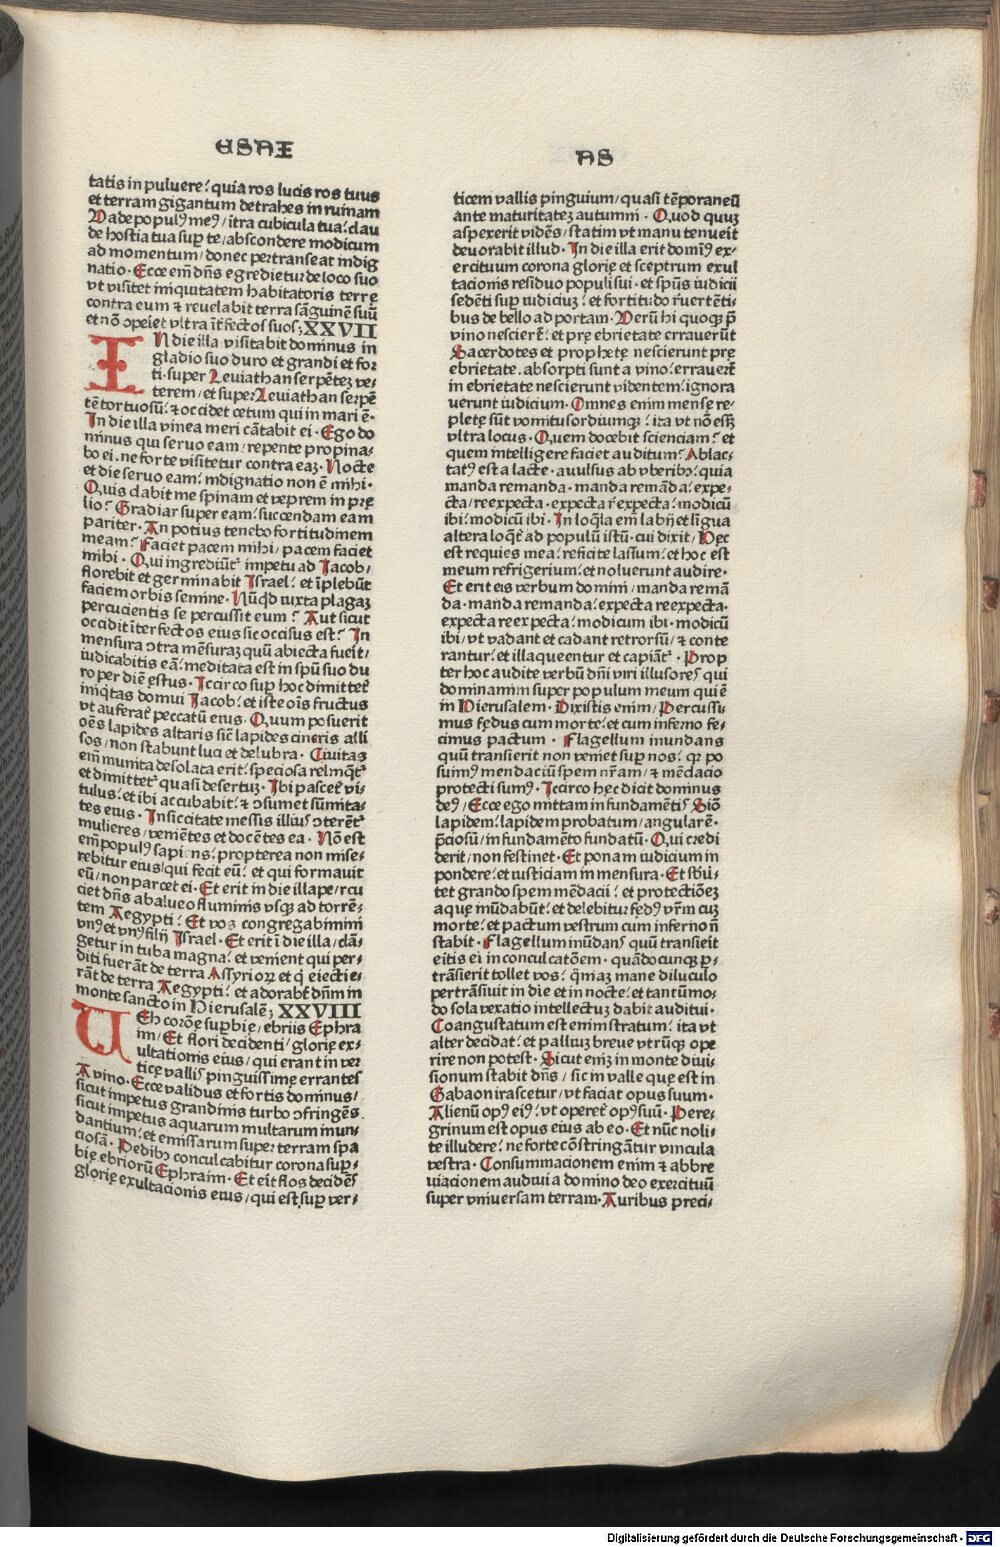 ESAI
AS
tatis in puluere? quia ros lucis ros tuus
et terram gigantum detrahes in ruinam
Vade populꝰ meꝰ/ ītra cubicula tua? clau
de hostia tua suꝑ te/ abscondere modicum
ad momentum/ donec pertranseat indig
natio· Ecce em̄ dn̄s egredietur de loco suo
vt visitet iniquitatem habitatoris terrę
contra eum ⁊ reuelabit terra sāguinē suū
et nō ɔperiet vltra īterfectos suos; XXVII
IN die illa visitabit dominus in
gladio suo duro et grandi et for
ti· super Leuiathan serpētez ve⸗
terem/ et super Leuiathan serpē
tē tortuosū? ⁊ occidet cetum qui in mari ē·
In die illa vinea meri cātabit ei· Ego do
minus qui seruo eam/ repente propina⸗
bo ei· ne forte visitetur contra eaz· Nocte
et die seruo eam? indignatio non ē mihi·
Quis dabit me spinam et veprem in prę
lio? Gradiar super eam? succendam eam
pariter· An potius tenebo fortitudinem
meam? Faciet pacem mihi/ pacem faciet
mihi· Qui ingrediūt᷑ impetu ad Jacob/
florebit et germinabit Jsrael? et īplebūt
faciem orbis semine· Nūq̄d iuxta plagaz
percucientis se percussit eum? Aut sicut
occidit īterfectos eius sic occisus est? In
mensura ɔtra mēsuraz quū abiecta fuerit/
iudicabitis eā? meditata est in spū suo du
ro per diē ęstus· Jccirco suꝑ hoc dimittet᷑
iniq̄tas domui Jacob? et iste oīs fructus
vt auferat᷑ peccatū eius· Quum posuerit
oēs lapides altaris sicut lapides cineris alli
sos/ non stabunt luci et delubra· Ciuitas
em̄ munita desolata erit? speciosa relinq̄t᷑
et dimittet᷑ quasi desertuz· Jbi pascet᷑ vi⸗
tulus? et ibi accubabit? ⁊ ɔsumet sūmita⸗
tes eius· In siccitate messis illiuſ ɔterēt᷑
mulieres/ veniētes et docētes ea· Nō est
em̄ populꝰ sapiens? propterea non mise⸗
rebitur eius/ qui fecit eū? et qui formauit
eū/ non parcet ei· Et erit in die illa percu
ciet dn̄s ab alueo fluminis vsqꝫ ad torrē⸗
tem Aegypti? Et vos congregabimini
vnꝰ et vnꝰ filij Jsrael· Et erit ī die illa/ clā⸗
getur in tuba magna? et venient qui per⸗
diti fuerāt de terra Assyrioꝝ et q̄ eiectie⸗
rāt de terra Aegypti? et adorabt̄ dn̄m in
monte sancto in Hierusalē; XXVIII
VEh coronę suꝑbię/ ebriis Ephra
im/ Et flori decidenti/ glorię ex⸗
ultationis eius/ qui erant in ver
ticę vallis pinguissimę errantes
A vino· Ecce validus et fortis dominus/
sicut impetus grandinis turbo ɔfringēs·
sicut impetus aquarum multarum inun⸗
dantium? et emissarum super terram spa
ciosā· Pedibꝫ conculcabitur corona suꝑ⸗
bię ebriorū Ephraim· Et erit flos decidēs
glorię exultacionis eius/ qui est suꝑ ver⸗
ticem vallis pinguium/ quasi tēporaneū
ante maturitatez autumni· Quod quuz
aspexerit vidēs/ statim vt manu tenuerit
deuorabit illud· In die illa erit domīꝰ ex⸗
ercituum corona glorię et sceptrum exul
tacionis residuo populi sui· et spūs iudicii
sedēti suꝑ iudiciuz? et fortitudo r̄uertēti⸗
bus de bello ad portam· Verū hi quoqꝫ p̄
vino nescierūt? et prę ebrietate errauerūt
Sacerdotes et prophetę nescierunt prę
ebrietate· absorpti sunt a vino? errauerūt
in ebrietate nescierunt videntem? ignora
uerunt iudicium· Omnes enim mensę re⸗
pletę sūt vomitu sordiumqꝫ? ita vt nō esset
vltra locus· Quem docebit scienciam? et
quem intelligere faciet auditum? Ablac⸗
tatꝰ est a lacte· auulsus ab vberibꝫ? quia
manda remanda· manda remāda? expe⸗
cta/ reexpecta· expecta r̄expecta? modicū
ibi? modicū ibi· In loq̄la em̄ labij et līgua
altera loq̄t᷑ ad populū istū· cui dixit/ Hęc
est requies mea? reficite lassum? et hoc est
meum refrigerium? et noluerunt audire·
Et erit eis verbum domini/ manda remā
da· manda remanda? expecta reexpecta·
expecta reexpecta? modicum ibi· modicū
ibi/ vt vadant et cadant retrorsū/ ⁊ conte
rantur? et illaqueentur et capiāt᷑· Prop
ter hoc audite verbū dn̄i viri illusores qui
dominamini super populum meum qui ē
in Hierusalem· Dixistis enim/ Percussi⸗
mus fędus cum morte? et cum inferno fe⸗
cimus pactum· Flagellum inundans
quū transierit non veniet suꝑ nos? qꝫ po
suimꝰ mendaciū spem nr̄am/ ⁊ mēdacio
protecti sumꝰ· Jccirco hęc dicit dominus
deꝰ/ Ecce ego mittam in fundamētis Siō
lapidem? lapidem probatum/ angularē·
p̄ciosū/ in fundamēto fundatū· Qui credi
derit/ non festinet· Et ponam iudicium in
pondere? et iusticiam in mensura· Et sbū⸗
tet grando spem mēdacii? et protectiōez
aquę inūdabūt? et delebitur fędꝰ vr̄m cuz
morte? et pactum vestrum cum inferno n̄
stabit· Flagellum inūdans quū transierit
eritis ei in conculcatōem· quādocunqꝫ ꝑ⸗
trāsierit tollet vos? qm̄ az mane diluculo
pertrāsiuit in die et in nocte? et tantūmo⸗
do sola vexatio intellectuz dabit auditui·
Coangustatum est enim stratum? ita vt
alter decidat? et palliuz breue vtrūqꝫ ope
rire non potest· Sicut enim in monte diui⸗
sionum stabit dn̄s/ sic in valle quę est in
Gabaon irascetur/ vt faciat opus suum·
Alienū opꝰ eiꝰ? vt operet᷑ opꝰ suū· Pere⸗
grinum est opus eius ab eo· Et nūc noli⸗
te illudere? ne forte cōstringātur vincula
vestra· Consummacionem enim ⁊ abbre
uiacionem audiui a domino deo exercituū
super vniuersam terram· Auribus preci⸗
Digitalisierung gefördert durch die Deutsche Forschungsgemeinschaft - DFG